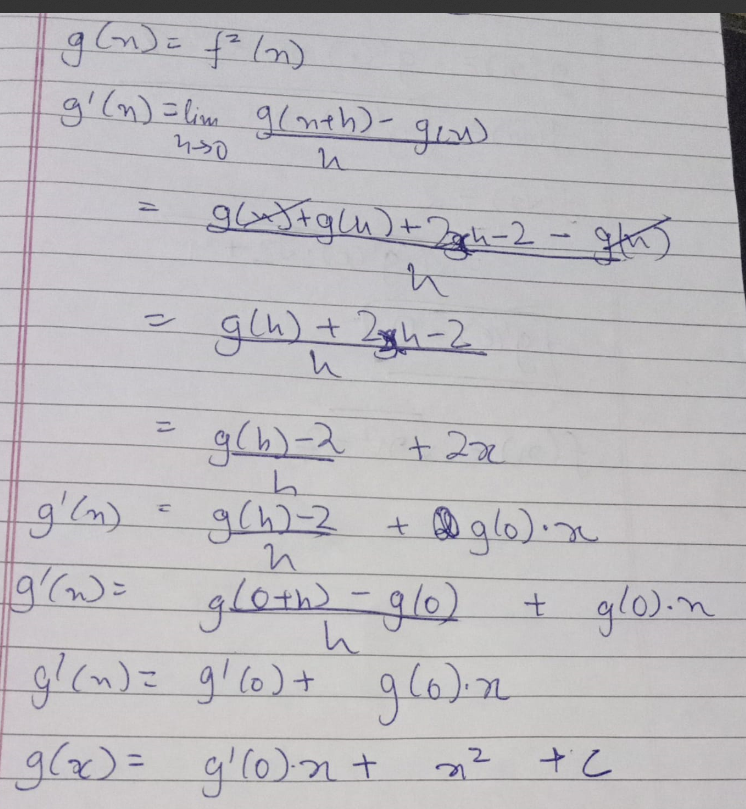 g(x) = f²(x)
g'(x) = lim h→0 (g(x+h) - g(x))/h
= (g(x) + g(h) + 2xh - 2 - g(x))/h
= (g(h) + 2xh - 2)/h
= (g(h) - 2)/h + 2x
g'(x) = (g(h) - 2)/h + g(0)·x
g'(x) = (g(0+h) - g(0))/h + g(0)·x
g'(x) = g'(0) + g(0)·x
g(x) = g'(0)·x + x² + c